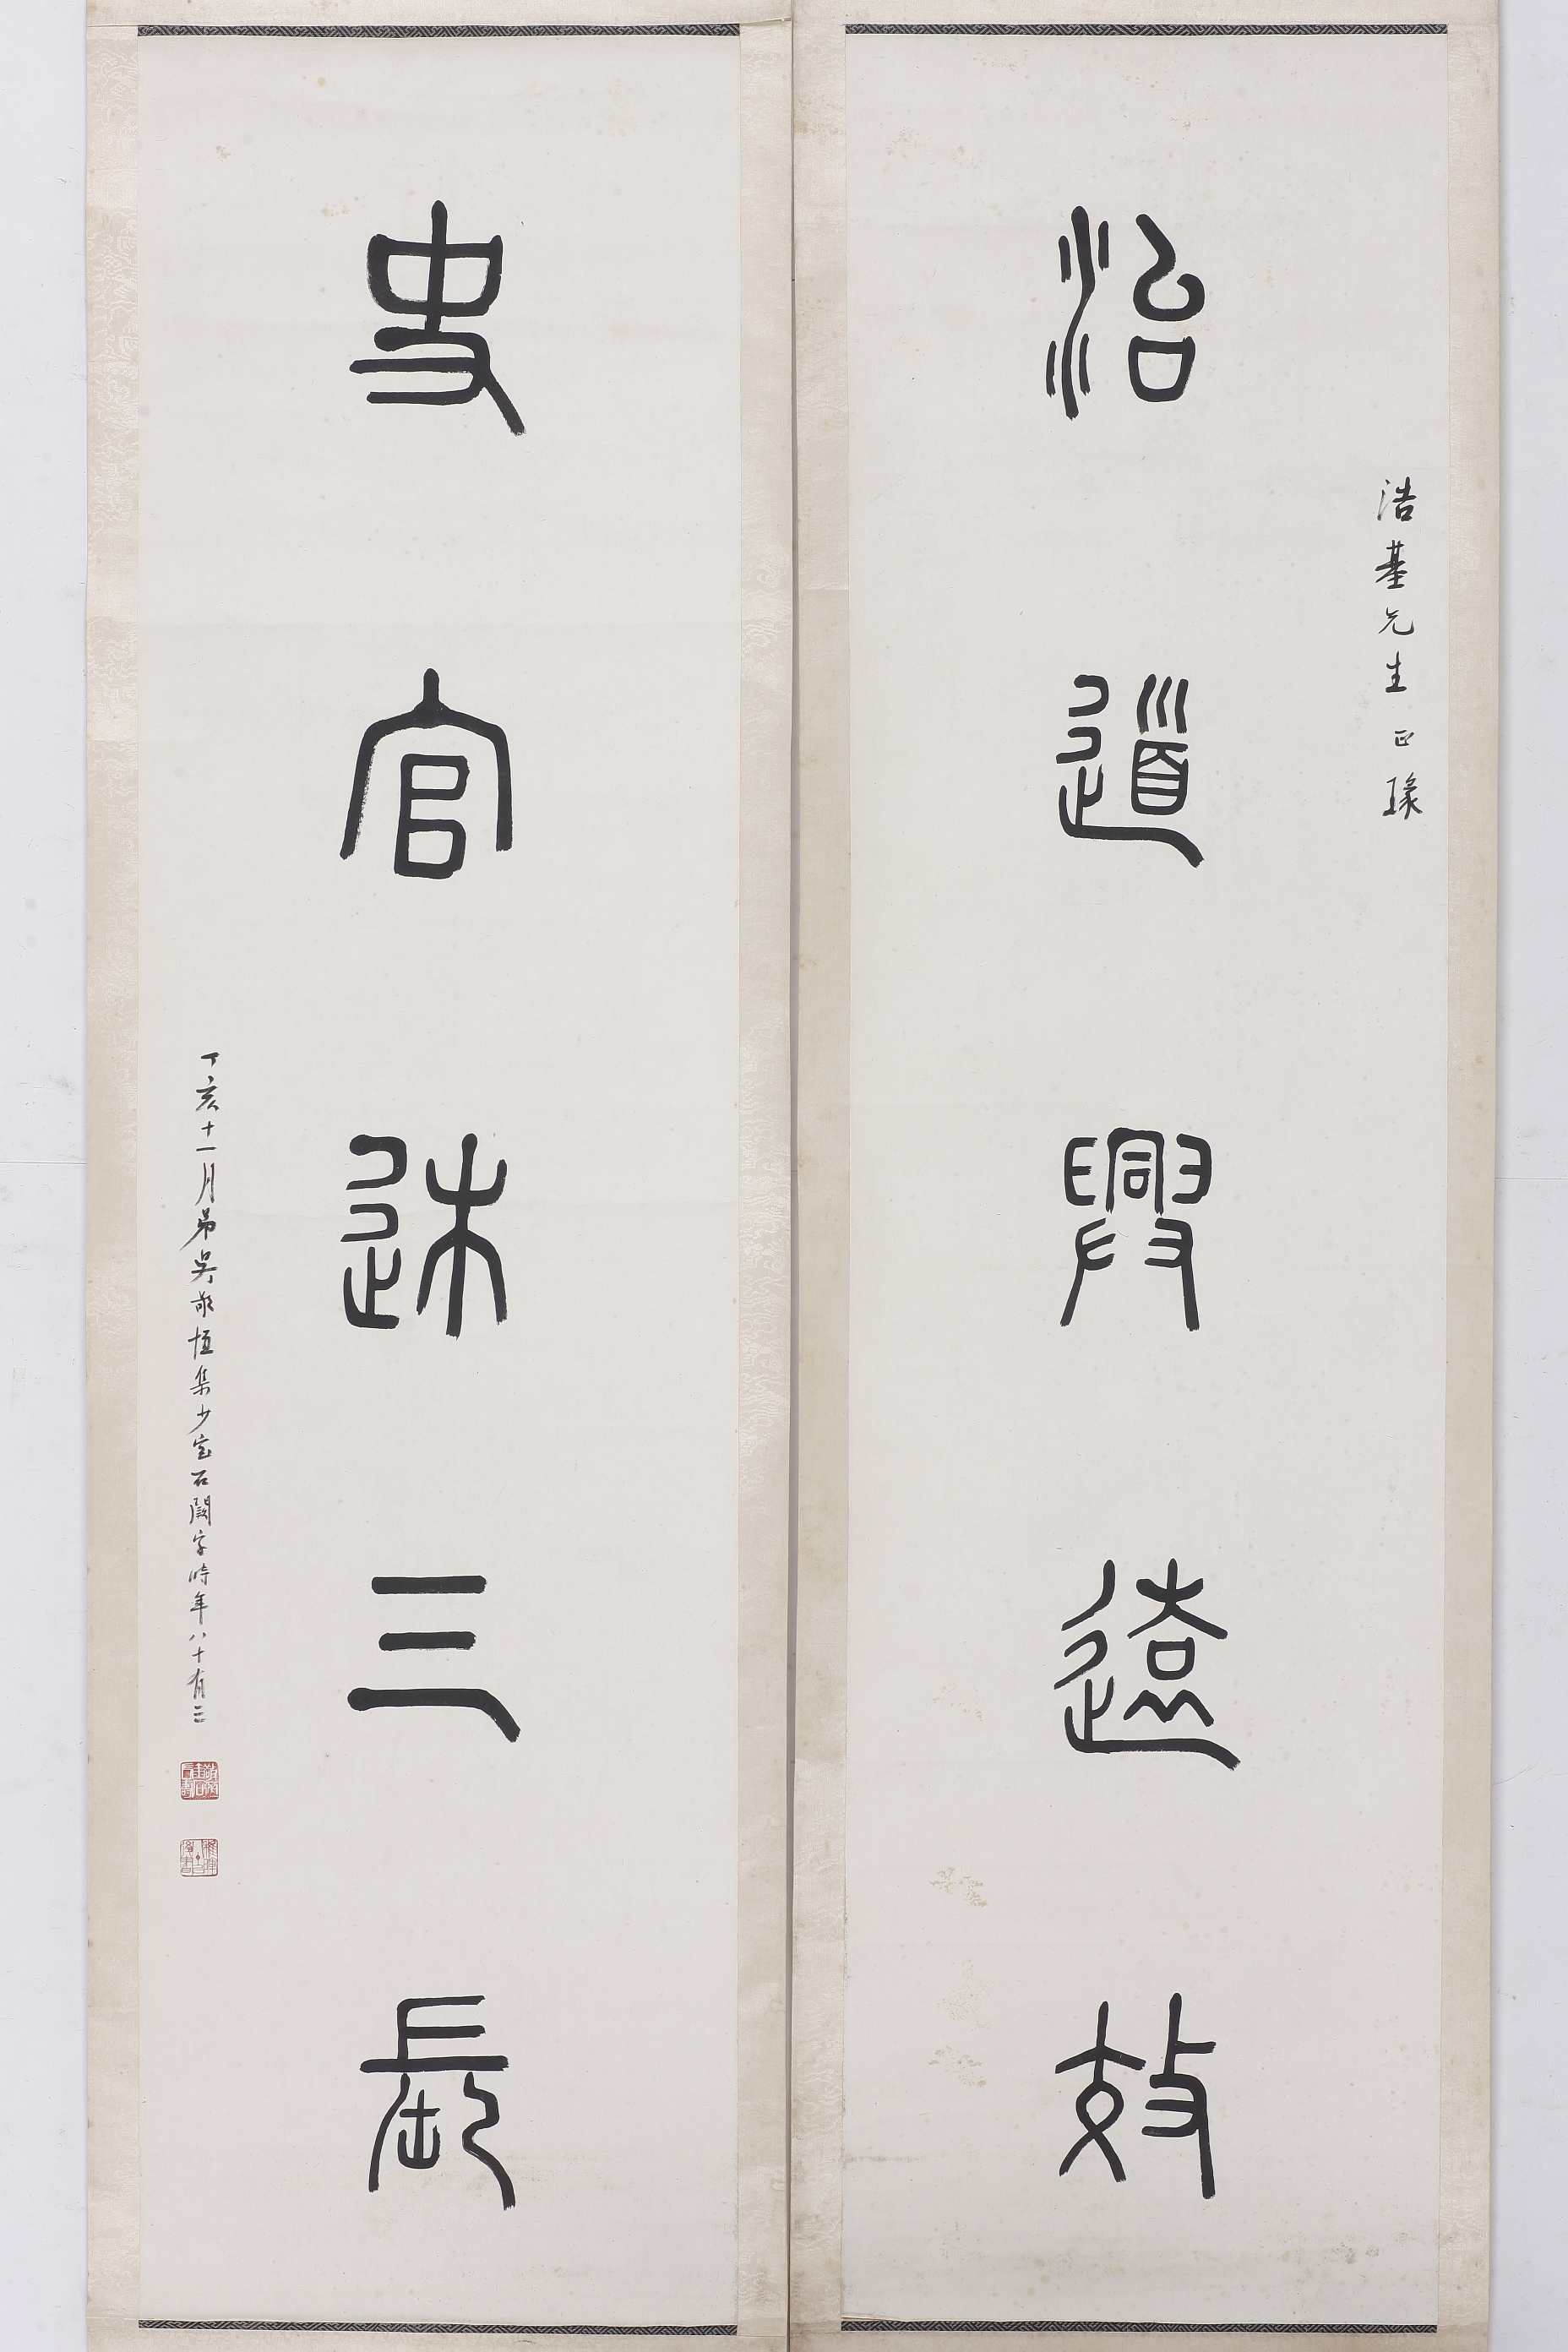 浩基先生 正瑑
治道興遠效
史官述三長
丁亥十一月弟吳敬恒集少室石闕字時年八十有三